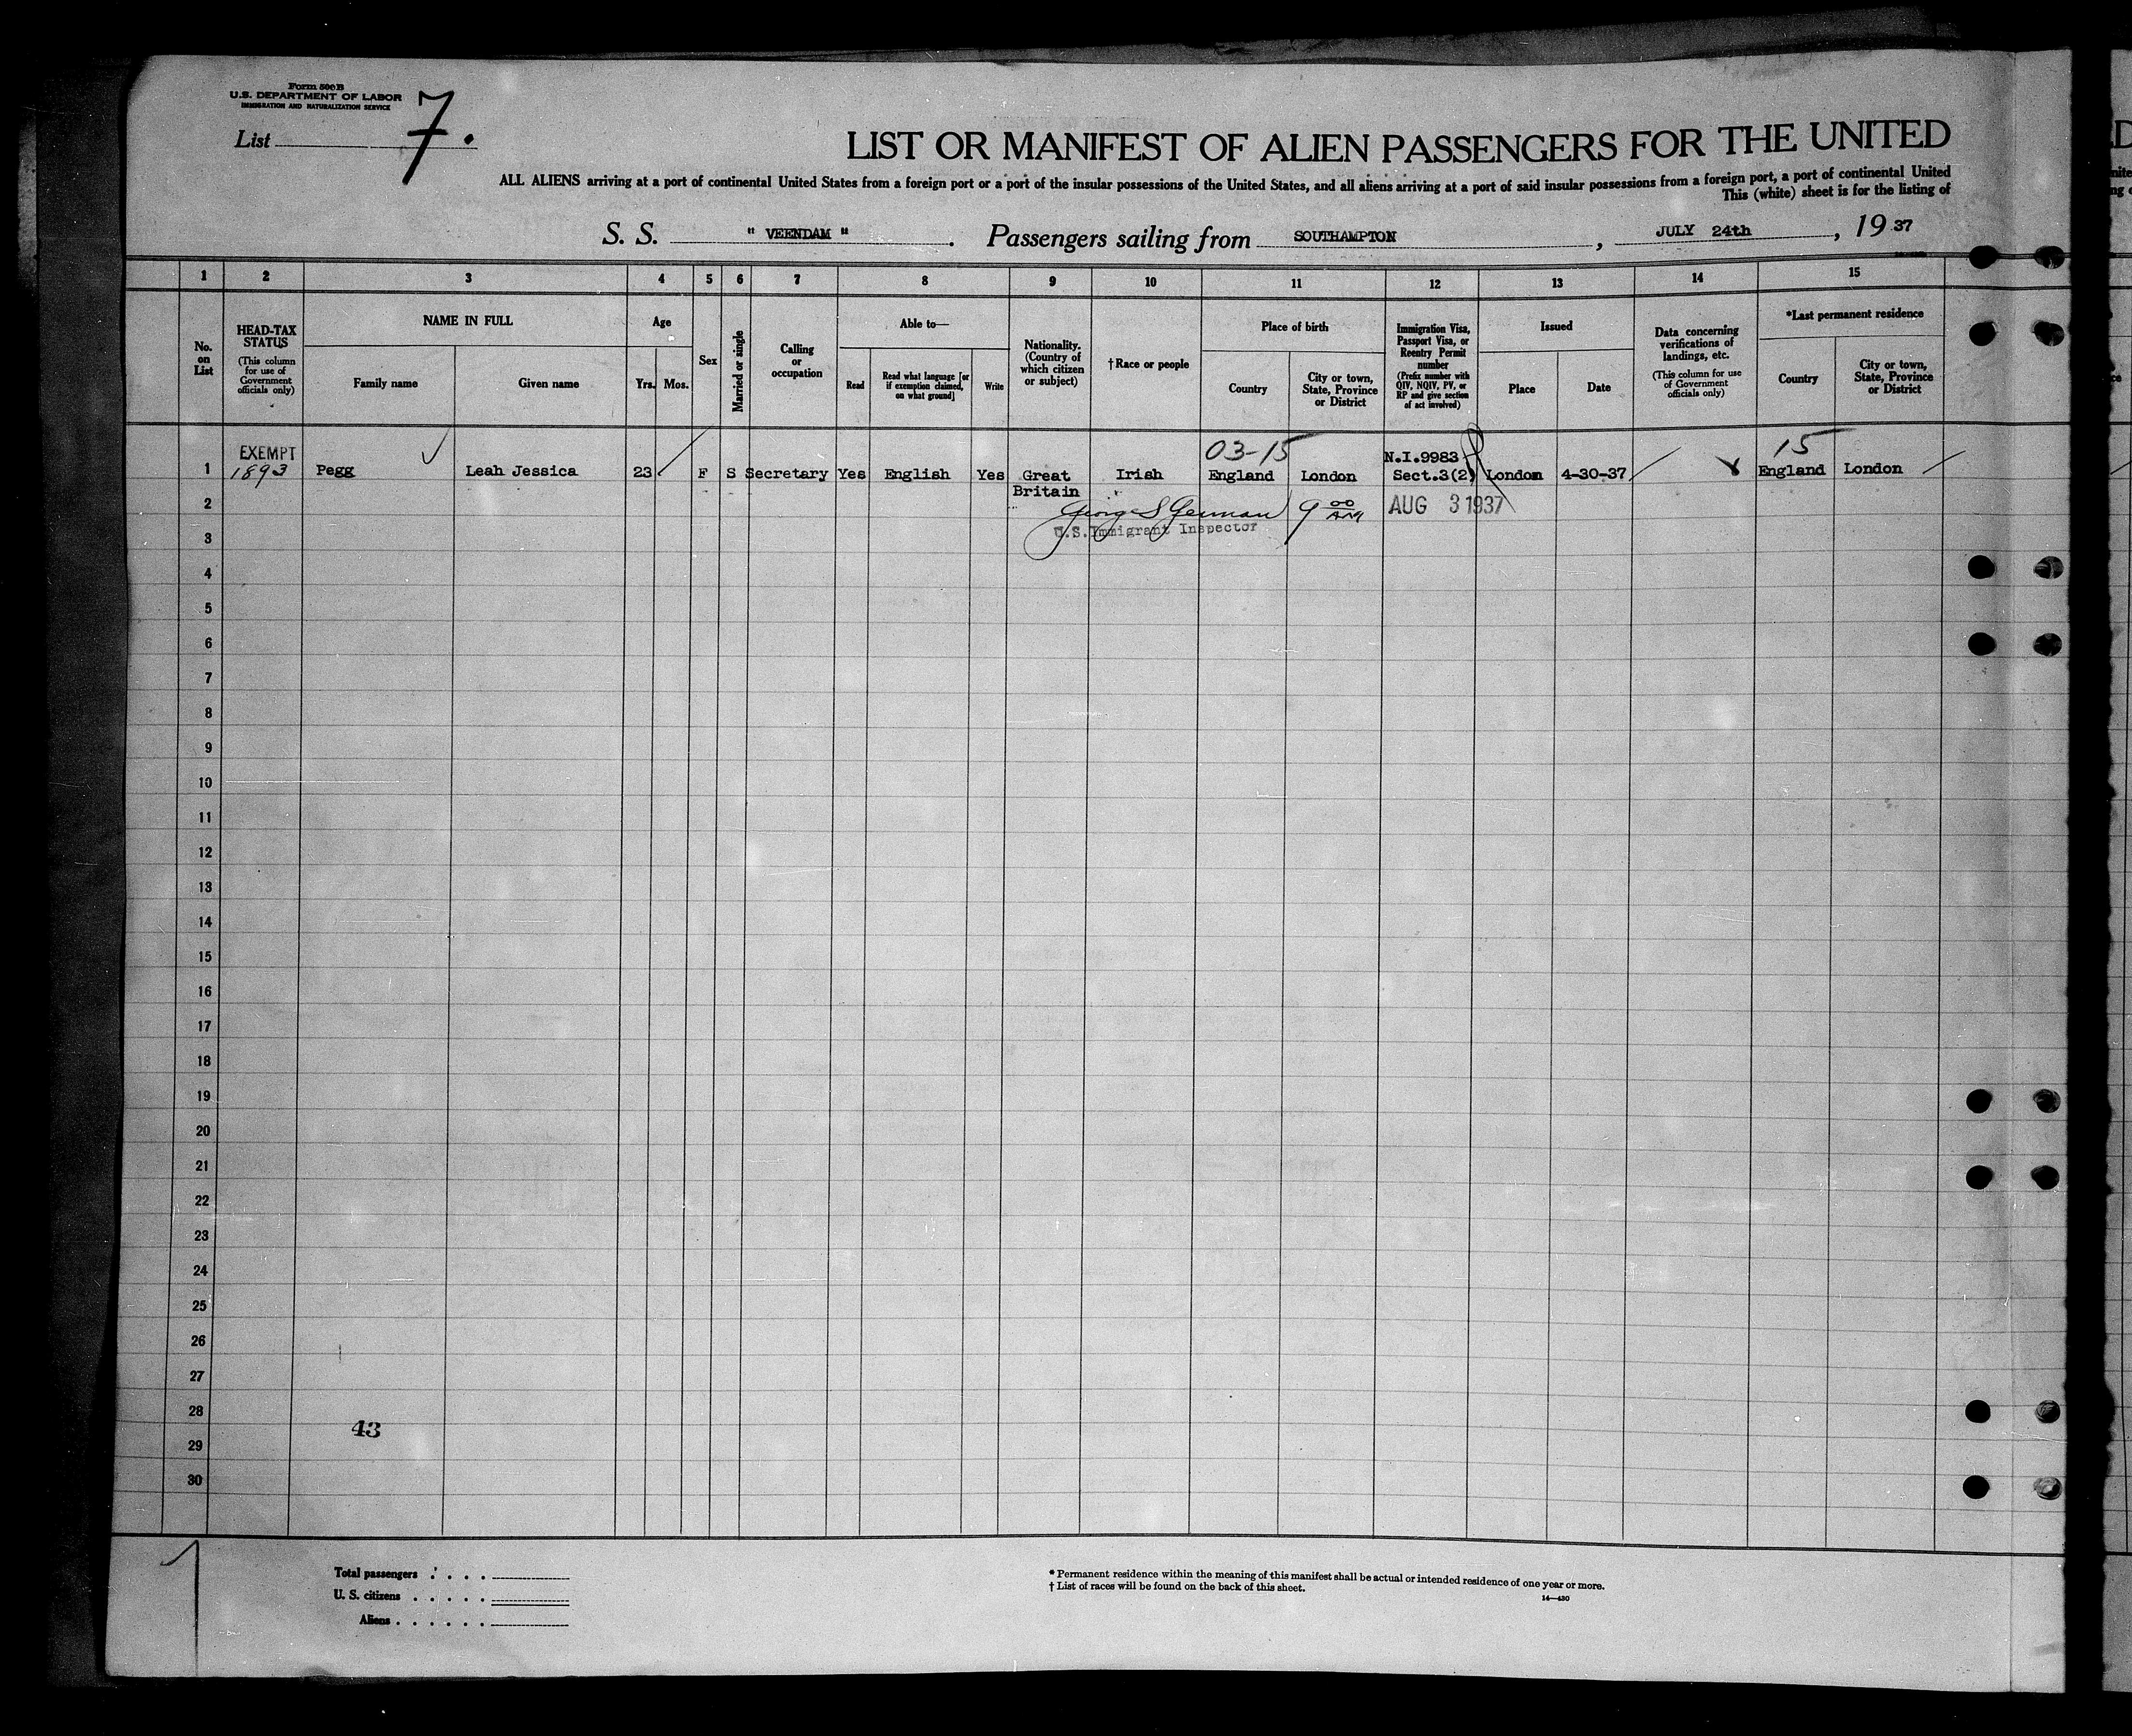 Form 500 B
U.S. DEPARTMENT OF LABOR
IMMIGRATION AND NATURALIZATION SERVICE
List 7.
LIST OR MANIFEST OF ALIEN PASSENGERS FOR THE UNITED
ALL ALIENS arriving at a port of continental United States from a foreign port or a port of the insular possessions of the United States, and all aliens arriving at a port of said insular possessions from a foreign port, a port of continental United
This (white) sheet is for the listing of
S. S. " VEENDAM ". Passengers sailing from SOUTHAMPTON, JULY 24th, 19 37
1 2 3 4 5 6 7 8 9 10 11 12 13 14 15
No. on List
HEAD-TAX STATUS
(This column for use of Government officials only)
NAME IN FULL
Family name
Given name
Age
Yrs.
Mos.
Sex
Married or single
Calling or occupation
Able to—
Read
Read what language [or if exemption claimed, on what ground]
Write
Nationality. (Country of which citizen or subject)
†Race or people
Place of birth
Country
City or town, State, Province or District
Immigration Visa, Passport Visa, or Reentry Permit number
(Prefix number with QIV, NQIV, PV, or RP and give section of act involved)
Issued
Place
Date
Data concerning verifications of landings, etc.
(This column for use of Government officials only)
*Last permanent residence
Country
City or town, State, Province or District
EXEMPT 03-15 N.I.9983 15
1 1893 Pegg Leah Jessica 23 F S Secretary Yes English Yes Great Irish England London Sect.3(2) London 4-30-37 England London
Britain
2 George S German 9 00 AM AUG 3 1937
U.S. Immigrant Inspector
3
4
5
6
7
8
9
10
11
12
13
14
15
16
17
18
19
20
21
22
23
24
25
26
27
28
43
29
30
Total passengers . . . .
U. S. citizens . . . . .
Aliens . . . . . .
* Permanent residence within the meaning of this manifest shall be actual or intended residence of one year or more.
† List of races will be found on the back of this sheet.
14—430